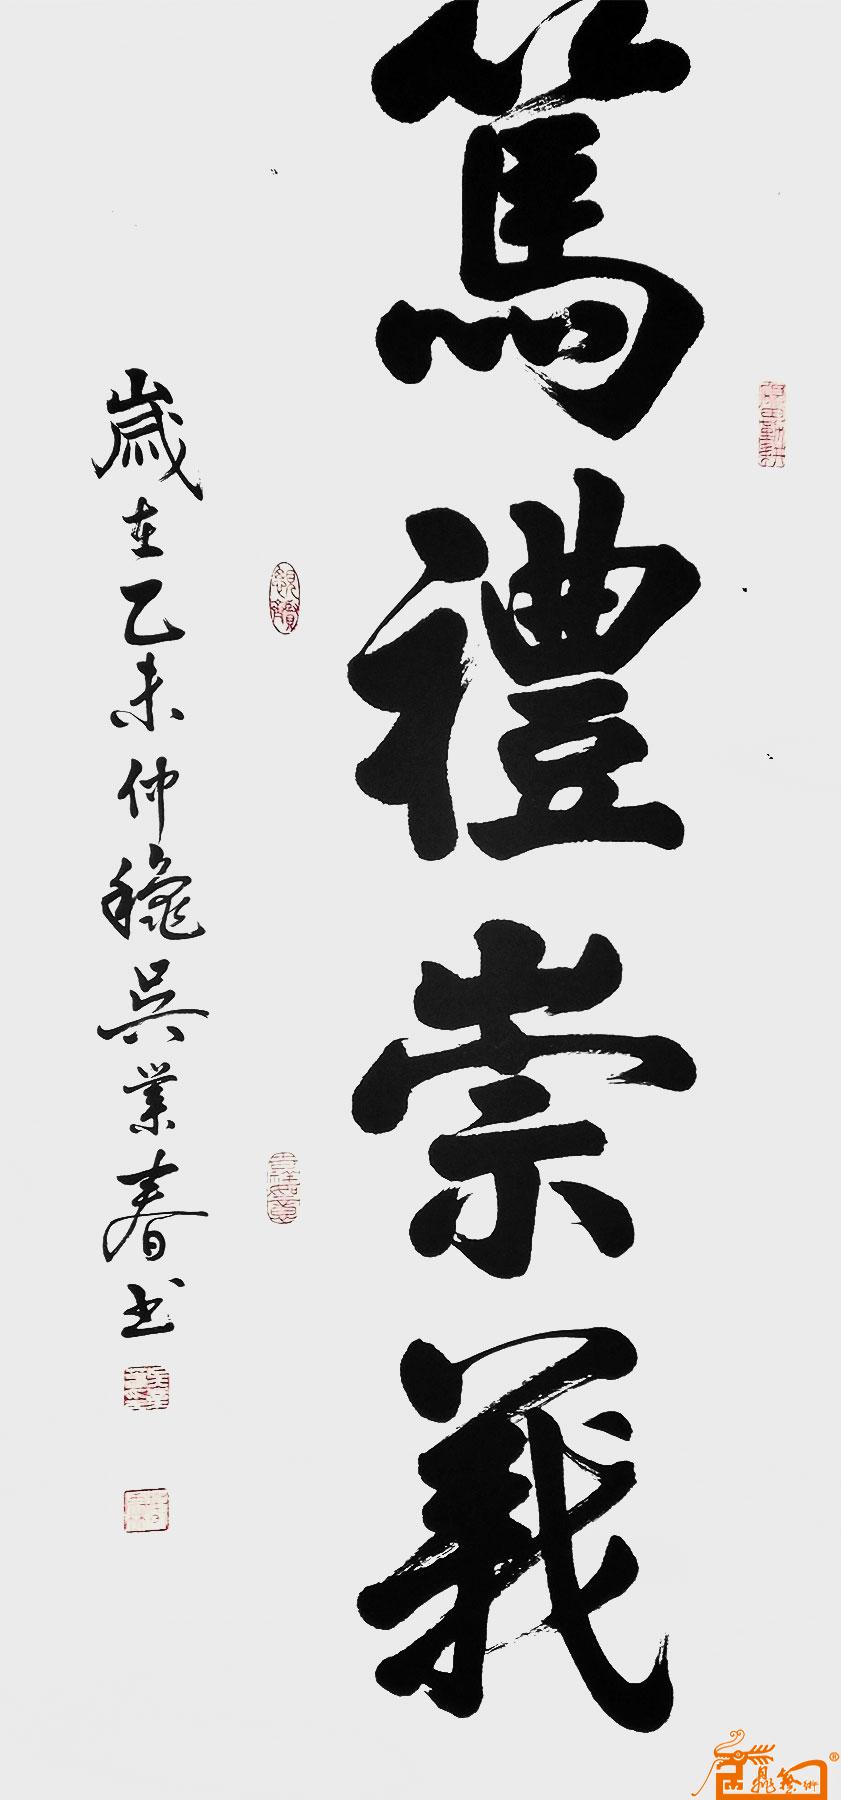 篤禮崇義
歲在乙未仲穐吳業春书